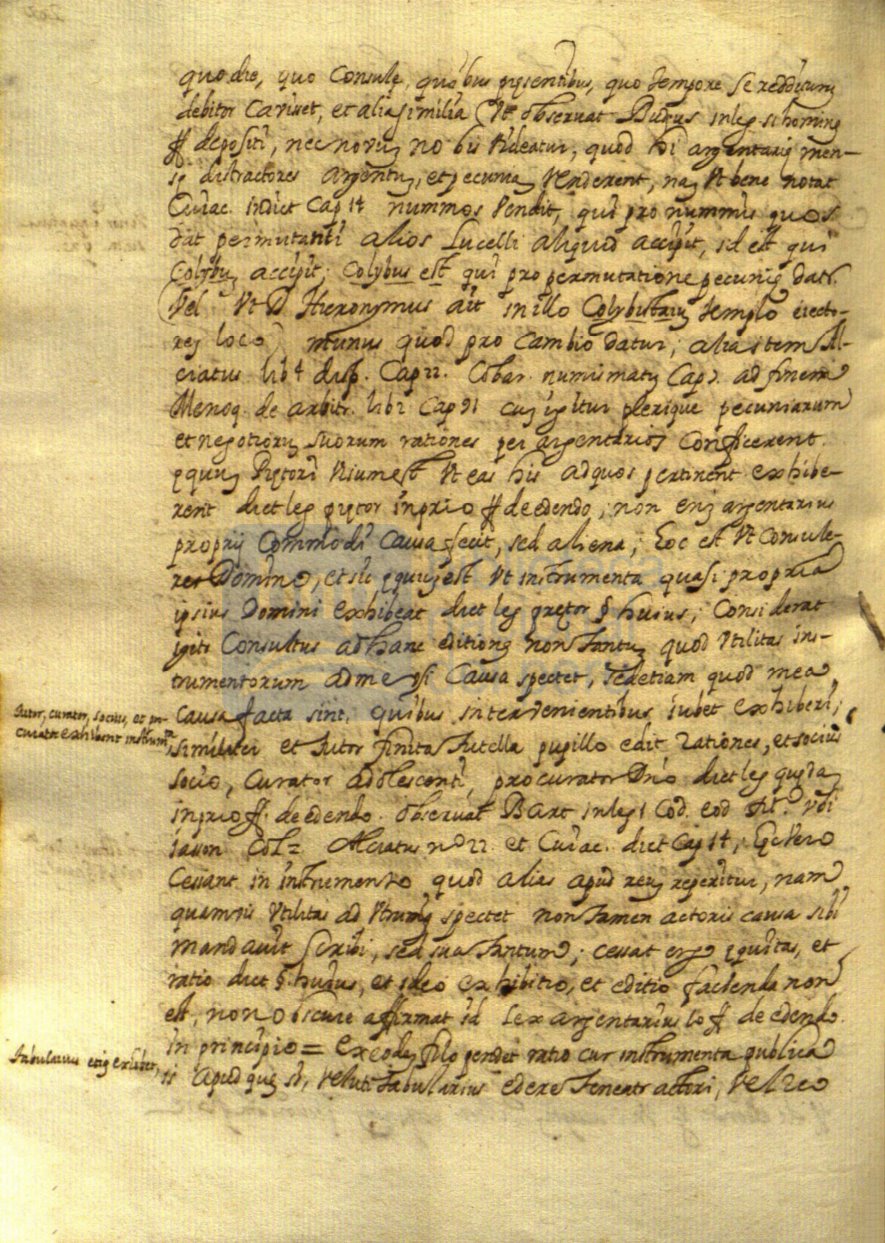 quo die, quo Consule, quibus presentibus, quo tempore se redditurum
debitor caviret, et alia similia (Vt observat Budeus in leg. si hominem
ff depositi, nec novum nobis Videatur, quod hi argentarij men-
sę distractores Argentum, et pecuniam Venderent, nam Vt bene notat
Cuiac. in dict Cap 14 nummos Vendit, qui pro nummis quos
dat permutanti alios Lucelli aliquid accipit, id est qui
Colybum accipit, Colybus est qui pro permutatione pecunię datr.
(Vel Vt D Hieronymus ait in illo Colybistarum templo eiecto-
rum loco) munus quod pro Cambio datur, alia item Al-
ciatus lib 4 disp. Cap 22. Cobar. numismatum Cap 7 ad finem
Menoq. de arbitr. lib 2 Cap 91 cum igitur plerique pecuniarum
et negotiorum suorum rationes per argentarios Conficerent.
ęquum Prętori Visum est Vt eas his ad quos pertinent exhibe-
rent dict leg prętor in prio ff de edendo, non enim argentarius
proprij Commodi Causa fecit, sed aliena, hoc est Vt Consule-
ret Domino, et sic ęquum est Vt instrumenta quasi propria
ipsius Domini exhibeat dict leg prętor § huius, Considerat
igitr Consultus ad hanc editionem non tantum quod Vtilitas ins-
trumentorum ad me et Causa spectet, sed etiam quod mea
Tutor, curator, socius, et pro-
curator exhibent instrumta
Causa facta sint, quibus intervenientibus iubet exhiberi,
similiter et tutor finita tutella pupillo edit rationes, et socius
socio, Curator adolescenti, procurator Dno dict leg quędam
in prio ff. de edendo. observat Bart in leg 1 Cod. eod tit. Vbi
iason Col 2 Alciatus no 22. et Cuiac. dict Cap 14, hęc Vero
Cessant in instrumento quod alias apud reum reperitur, nam
quamvis Vtilitas ad Vtrumq spectet non tamen actoris causa sibi
mandavit scribi, sed sua tantum, cessat ergo ęquitas, et
ratio dict § huius, et ideo exhibitio, et editio facienda non
est, non obscure affirmat id Lex argentarius 10 ff de edendo
in principio = Ex eodem filo pendet ratio cur instrumenta publica
Tabularius etiam exhibet,
si apud quem sit, Veluti tabularius edere teneatr actori, Vel reo